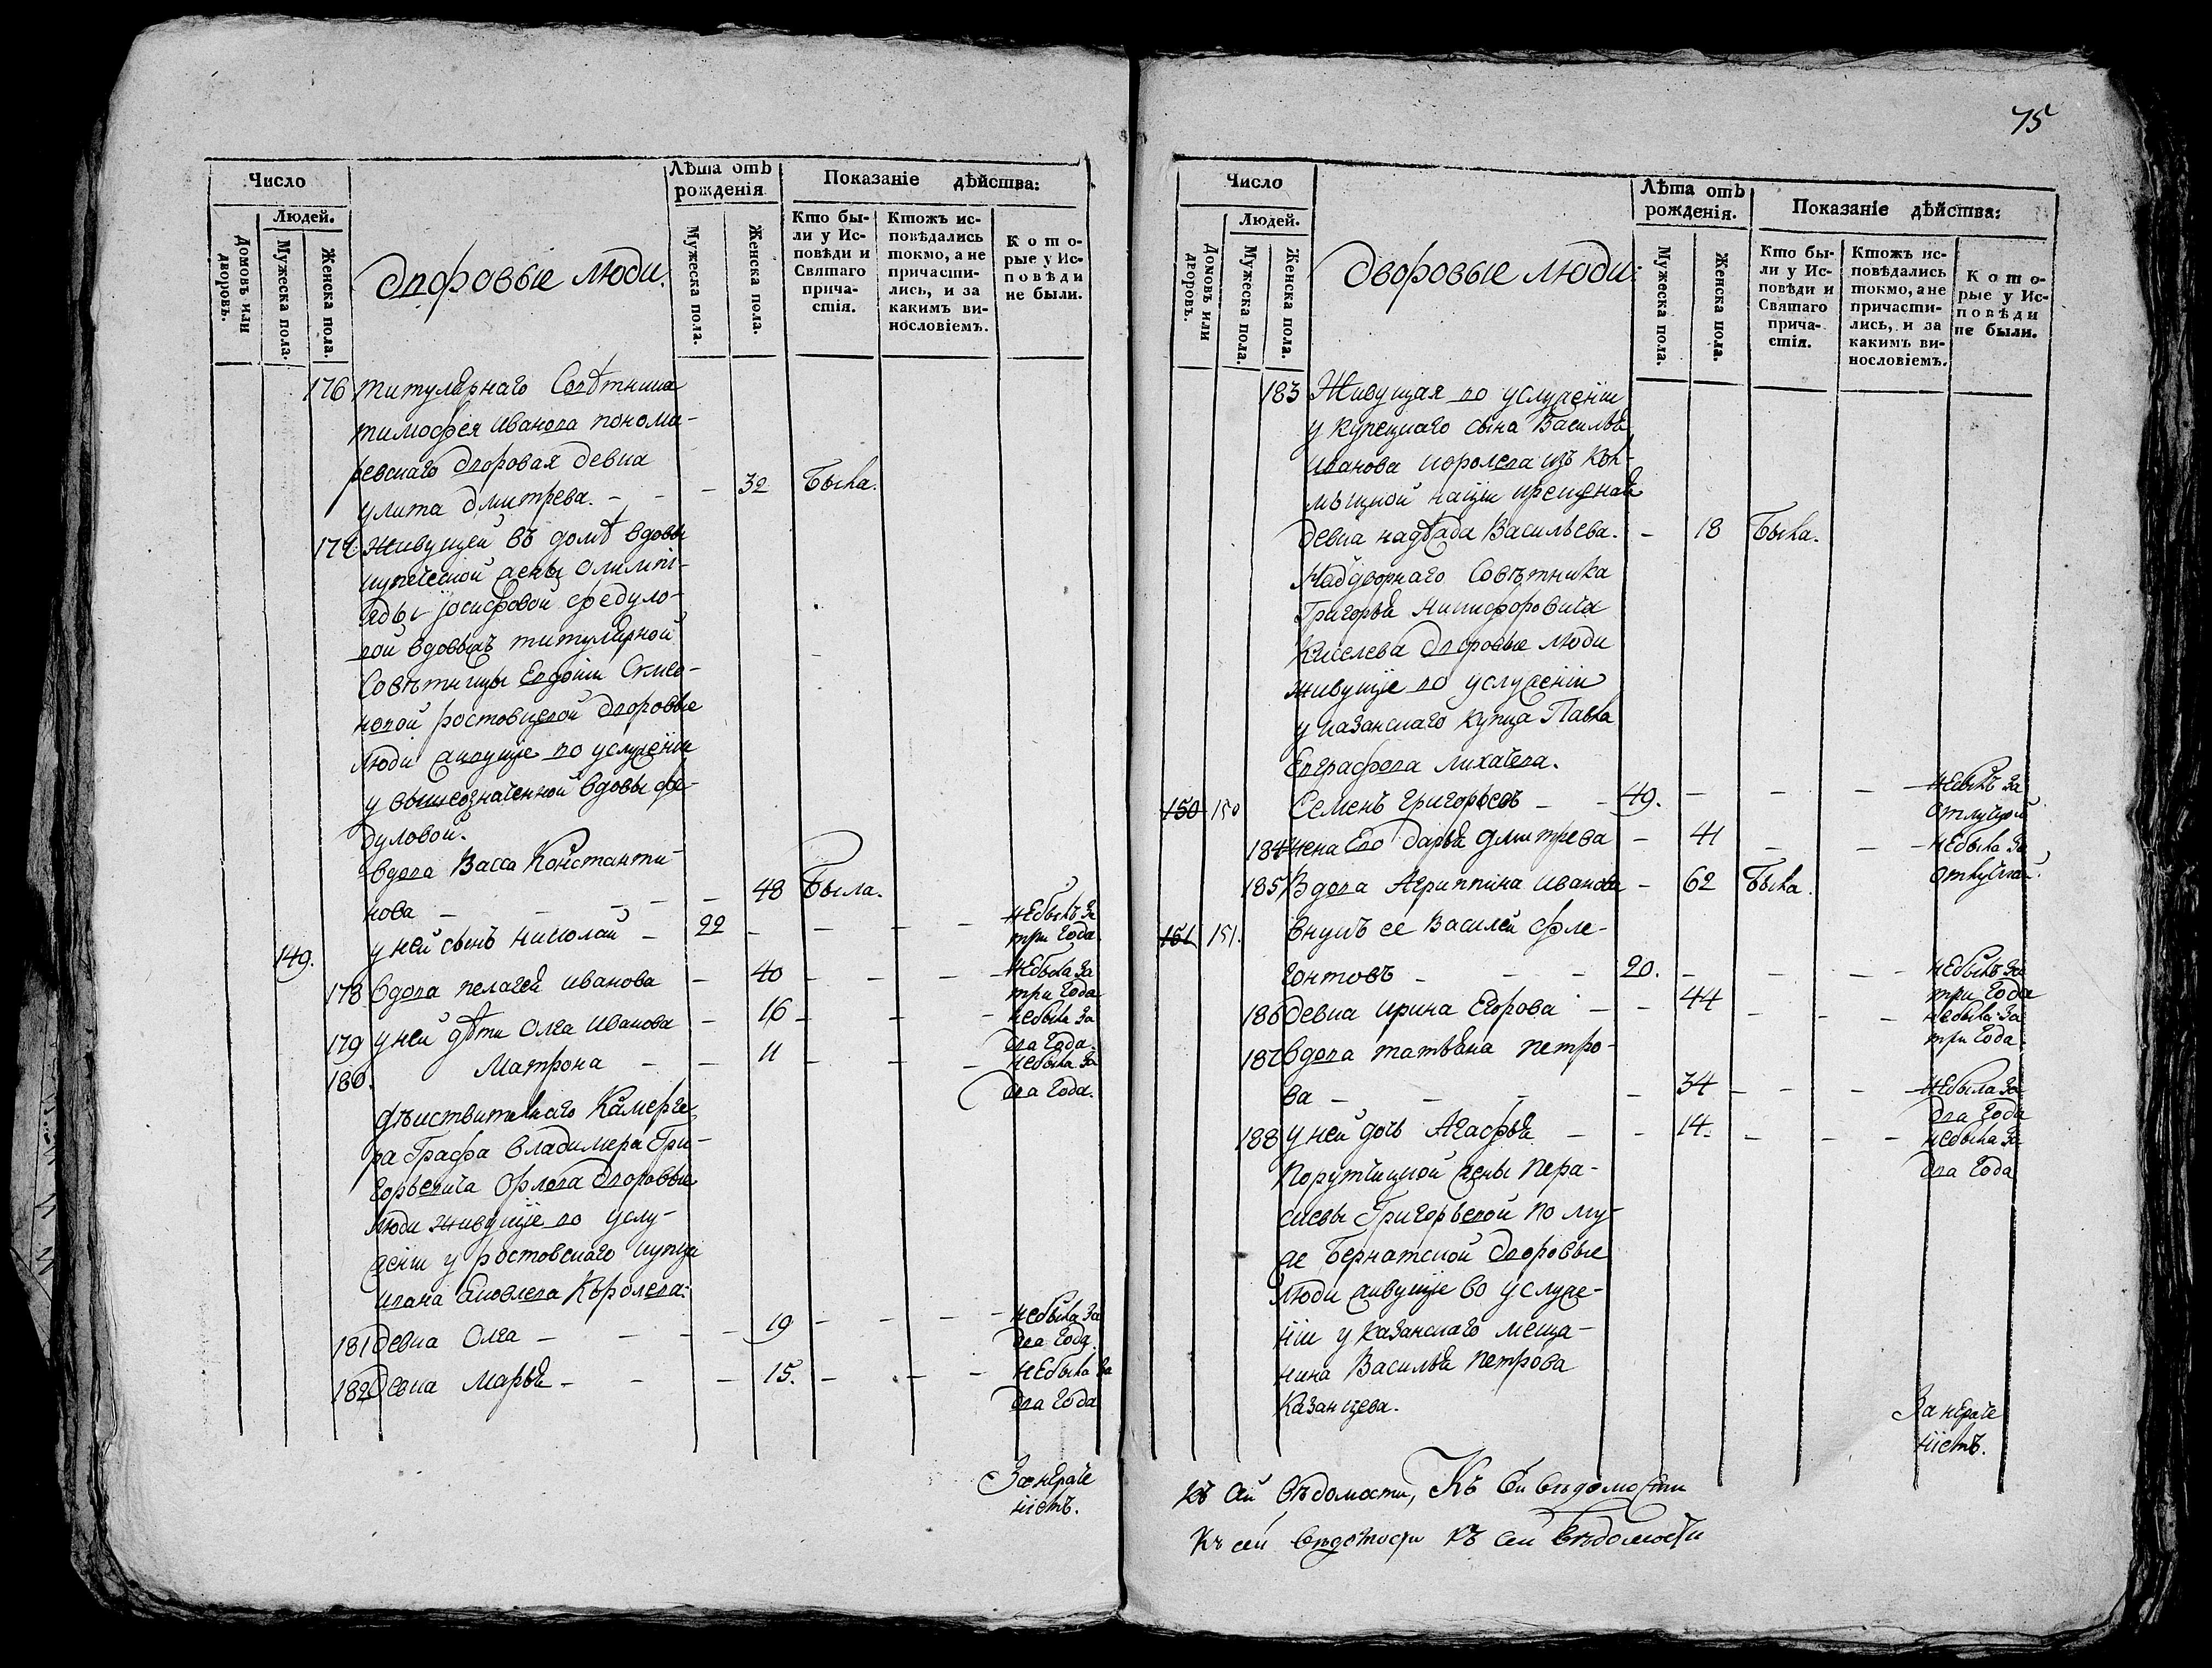 Число
Людей.
Домовъ или дворовъ.
Мужеска пола.
Женска пола.
Дворовые люди.
Лѣта отъ рожденія
Мужеска пола.
Женска пола.
Показаніе дѣйства:
Кто бы-
ли у Ис-
повѣди и
Святаго
прича-
стія.
Ктожъ ис-
повѣдались
токмо, а не
причасти-
лись, и за
какимъ ви-
нословіемъ.
Кото-
рые у Ис-
повѣди
не были.
176 титулярнаго Совѣтника
тимофея Иванова понома-
ревскаго дворовая девка
улита дмитрева. - - - 32 Была.
177 Живущей въ домѣ вдовы
купеческой жены олимпі-
яды іосифовой федуло-
вой вдовыжъ титулярной
Совѣтницы Евдокіи Симео-
новой ростовцевой дворовые
люди живущіе во услуженіи
у вышеозначенной вдовы фе-
дуловой.
вдова Васса Константи-
нова - - - - - 48 Была.
149. у ней сынъ николай - 22 - - - - небылъ за
три года.
178 вдова пелагея иванова - 40 - - - небыла за
три года
179 у ней дѣти Олга Иванова - 16 - - - небыла за
два года.
180. Матрона - - 11 - - - небыла за
два года.
дѣйствителнаго Камерге-
ра Графа владимера Гри-
горьевича Орлова дворовые
люди живущіе во услу-
женіи у ростовскаго купца
ивана яковлева Королева:
181 девка Олга - - - - 19 - - - - небыла за
два года.
182 девка Марья - - - 15. - - - небыла за
два года
За нерачі
ніемъ.
75
Число
Людей.
Домовъ или дворовъ.
Мужеска пола.
Женска пола.
Дворовые люди:
Лѣта отъ рожденія.
Мужеска пола.
Женска пола.
Показаніе дѣйства:
Кто бы-
ли у Ис-
повѣди и
Святаго
прича-
стія.
Ктожъ ис-
повѣдались
токмо, а не
причасти-
лись, и за
какимъ ви-
нословіемъ.
Кото-
рые у Ис-
повѣди
не были.
183 Живущая во услуженіи
у купецкаго сына Василья
иванова королева изъ кал-
мыцкой націи крещеная
девка надѣжда Васильева. - 18 Была.
Надворнаго Совѣтника
Григорья Никифоровича
Киселева дворовые люди
живущіе во услуженіи
у казанскаго купца Павла
Евграфова лихачева.
150 150 Семенъ григорьевъ - - 49. - - - небылъ за
отлучкой
184 жена Его дарья дмитрева - 41 - - - небыла за
отлучкой.
185 Вдова Агриппина иванова - 62 Была.
151 151. внукъ ее Василей фле-
гонтовъ - - - 20. - - - - небылъ за
три года
186 девка ирина Егорова - - 44 - - - небыла за
три года.
187 вдова татьяна петро-
ва - - - - 34 - - - небыла за
два года
188 у ней дочь Агафья - - 14. - - - небыла за
два года
Порутчицкой жены пера-
скевы Григорьевой по му-
же Бернатской дворовые
люди живущіе во услуже-
ніи у казанскаго меща-
нина Василья петрова
Казанцева.
За нерачі
ніемъ.
къ сей вѣдомости, Къ сей вѣдомости
къ сей вѣдомости къ сей вѣдомости